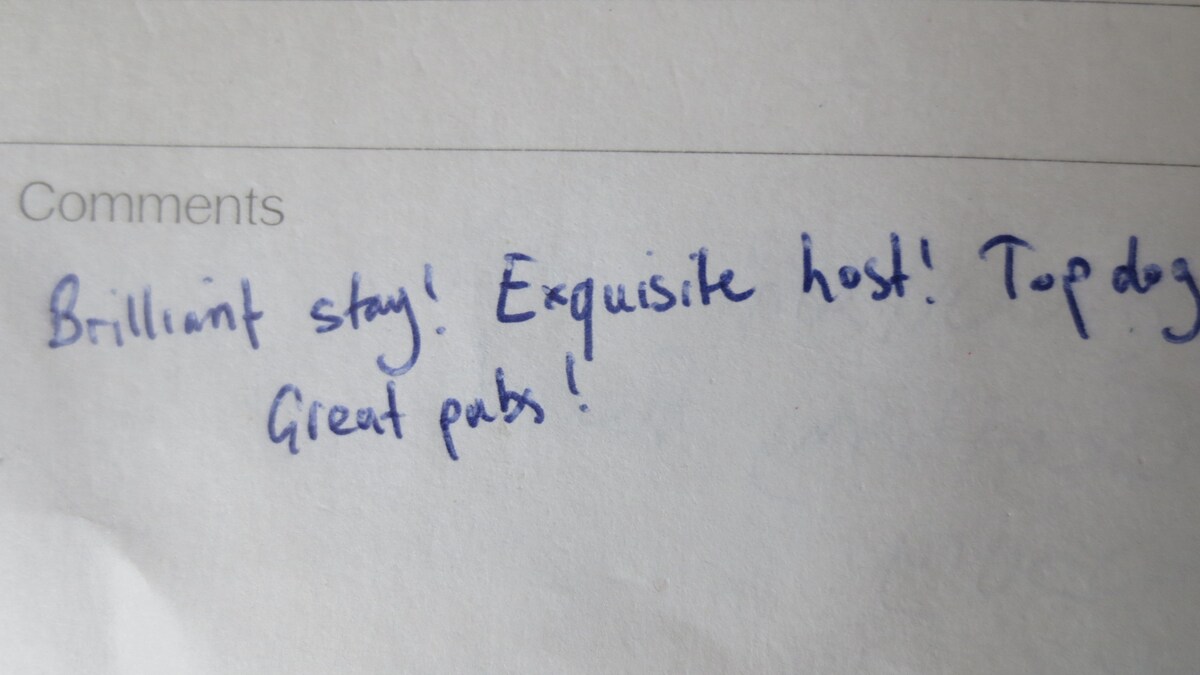 Comments
Brilliant stay! Exquisite host! Top dog
Great pubs!